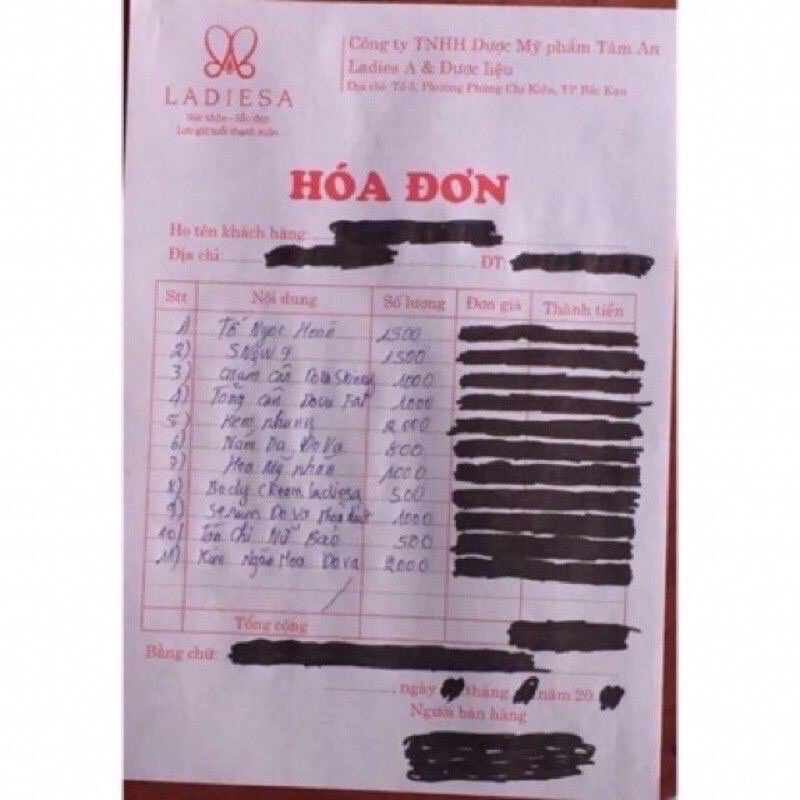 LADIESA
Sức khỏe - Sắc đẹp
Lưu giữ tuổi thanh xuân
Công ty TNHH Dược Mỹ phẩm Tâm An
Ladies A & Dược liệu
Địa chỉ: Tổ 3, Phường Phùng Chí Kiên, TP Bắc Kạn
HÓA ĐƠN
Họ tên khách hàng
Địa chỉ:
ĐT:
Stt Nội dung Số lượng Đơn giá Thành tiền
1) Tố Ngọc Hoàn 1500
2) SNOW 9 1500
3) Giảm cân Dova 1000
4) Tăng cân Dova Fat 1000
5) Kem nhung 2000
6) Nám Da Dova 800
7) Hoa Mỹ nhân 1000
8) Body Cream ladiesa 500
9) Serum Dova 1000
10) Táo Chi Nữ Bảo 500
11) Kim Ngân Hoa Dova 2000
Tổng cộng
Bằng chữ:
, ngày tháng năm 20
Người bán hàng